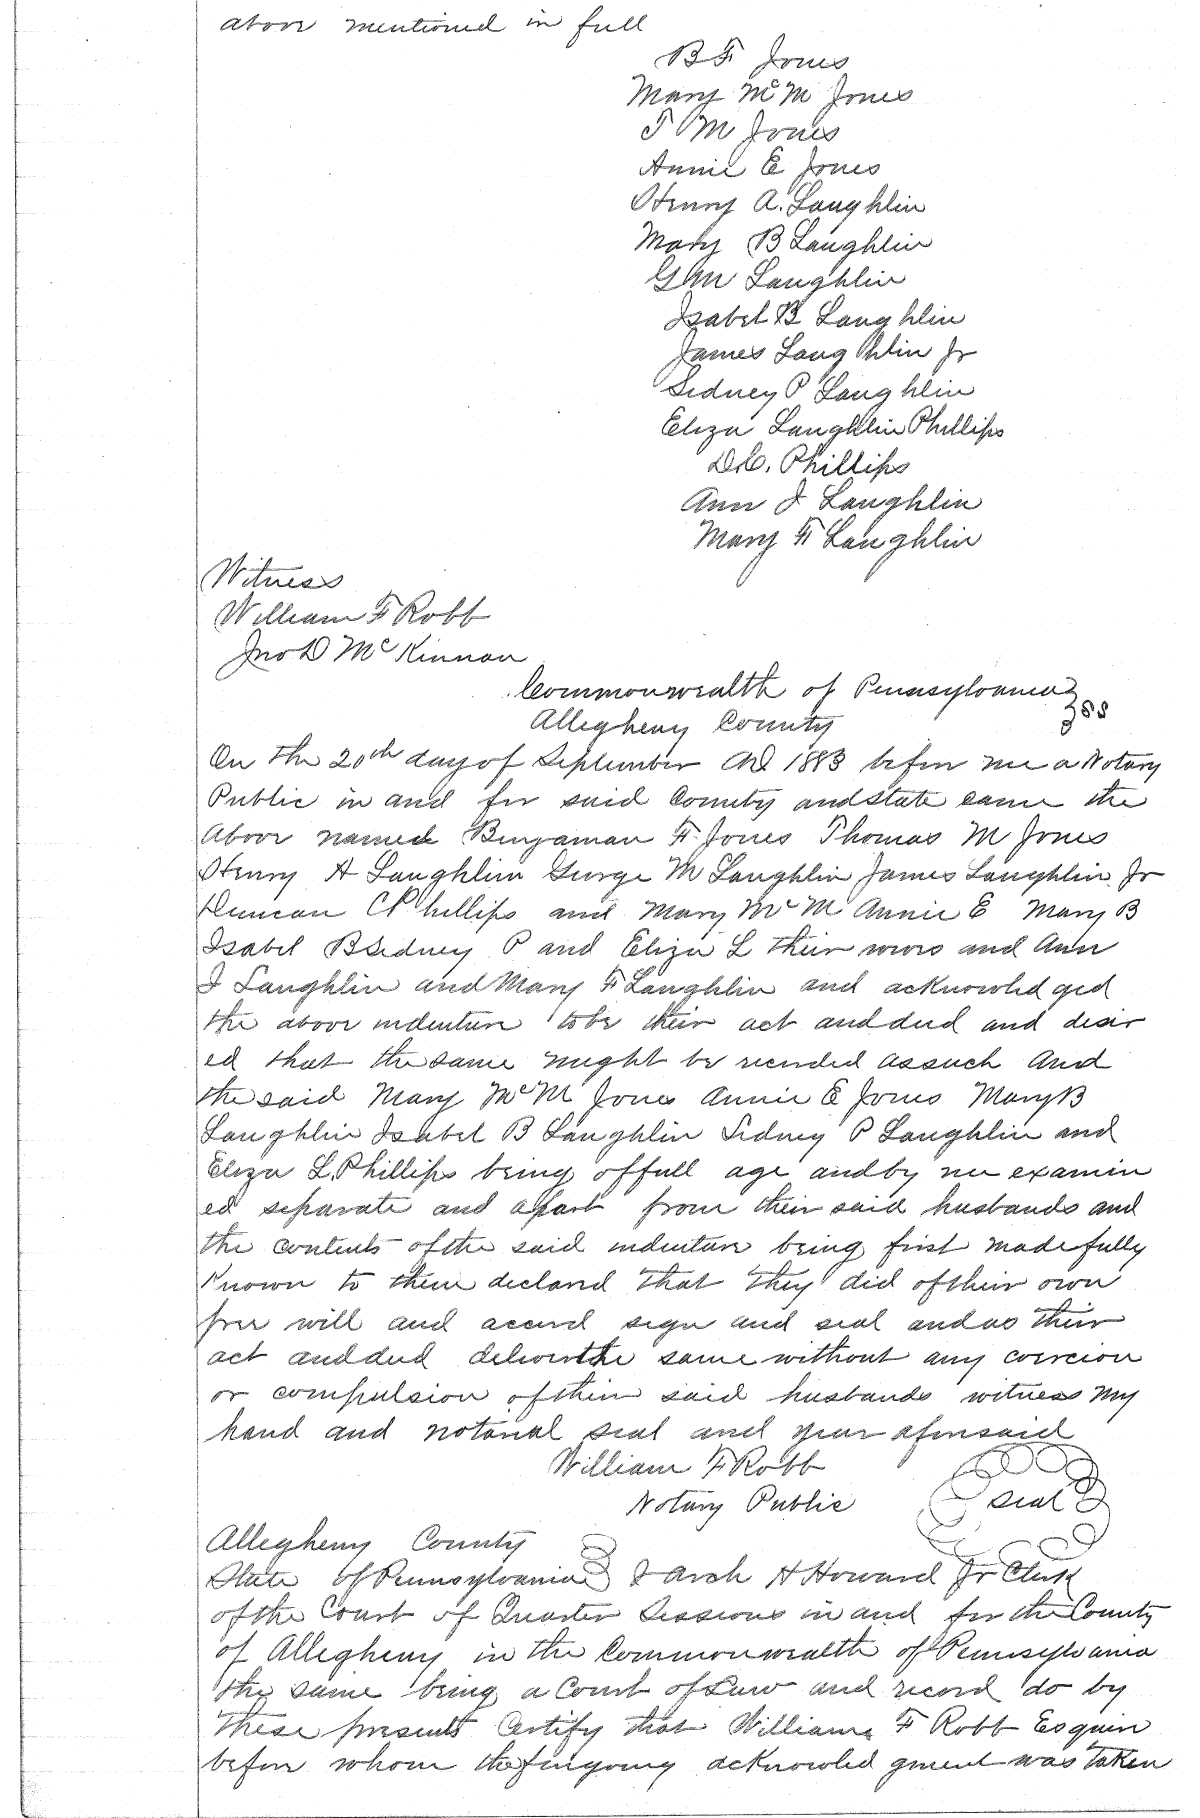 above mentioned in full
B F Jones
Mary McM Jones
T M Jones
Annie E Jones
Henry A. Laughlin
Mary B Laughlin
G M Laughlin
Isabel B Laughlin
James Laughlin Jr
Sidney P Laughlin
Eliza Laughlin Phillips
D.C. Phillips
Ann I Laughlin
Mary F Laughlin
Witness
William F Robb
Jno D McKinnon
Commonwealth of Pennsylvania
Allegheny County } ss
On the 20th day of September AD 1883 before me a Notary
Public in and for said County and State came the
above named Benjaman F. Jones Thomas M Jones
Henry A Laughlin George M Laughlin James Laughlin Jr
Duncan C Phillips and Mary McM Annie E Mary B
Isabel B Sidney P and Eliza L their wives and Ann
I Laughlin and Mary F Laughlin and acknowledged
the above indenture to be their act and deed and desir
ed that the same might be recorded as such And
the said Mary McM Jones Annie E Jones Mary B
Laughlin Isabel B Laughlin Sidney P Laughlin and
Eliza L. Phillips being of full age and by me examin
ed separate and apart from their said husbands and
the contents of the said indenture being first made fully
Known to them declared that they did of their own
free will and accord sign and seal and as their
act and deed deliver the same without any coercion
or compulsion of their said husbands witness my
hand and notarial seal and year aforesaid
William F Robb
Notary Public seal
Allegheny County
State of Pennsylvania } I Arch H Howard Jr Clerk
of the Court of Quarter Sessions in and for the County
of Allegheny in the Commonwealth of Pennsylvania
the same being a Court of Law and record do by
these presents Certify that William F Robb Esquire
before whom the foregoing acknowledgment was taken